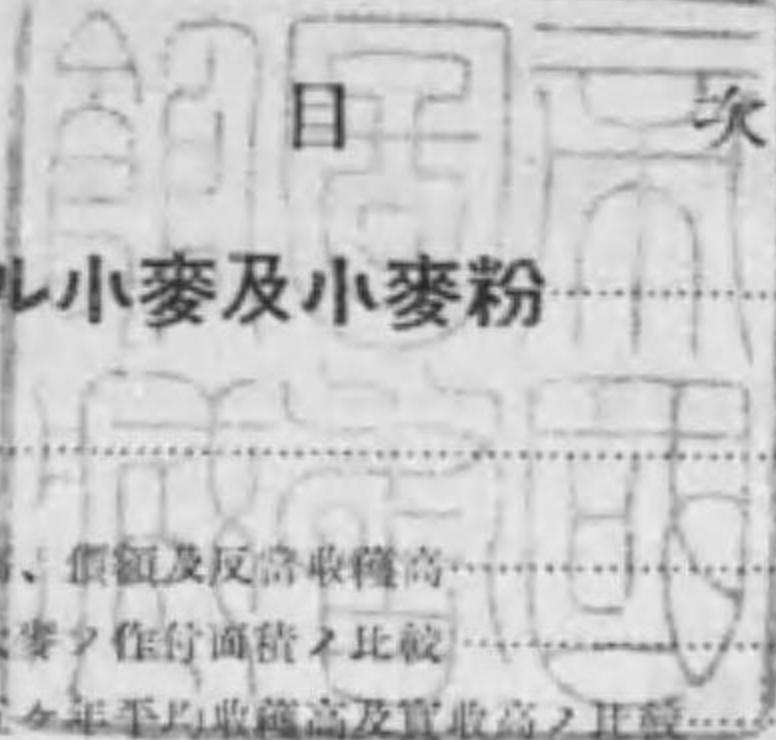 目次
ル小麥及小麥粉
、價額及反當收穫高
麥ノ作付面積ノ比較
ケ年平均收穫高及實收高ノ比較